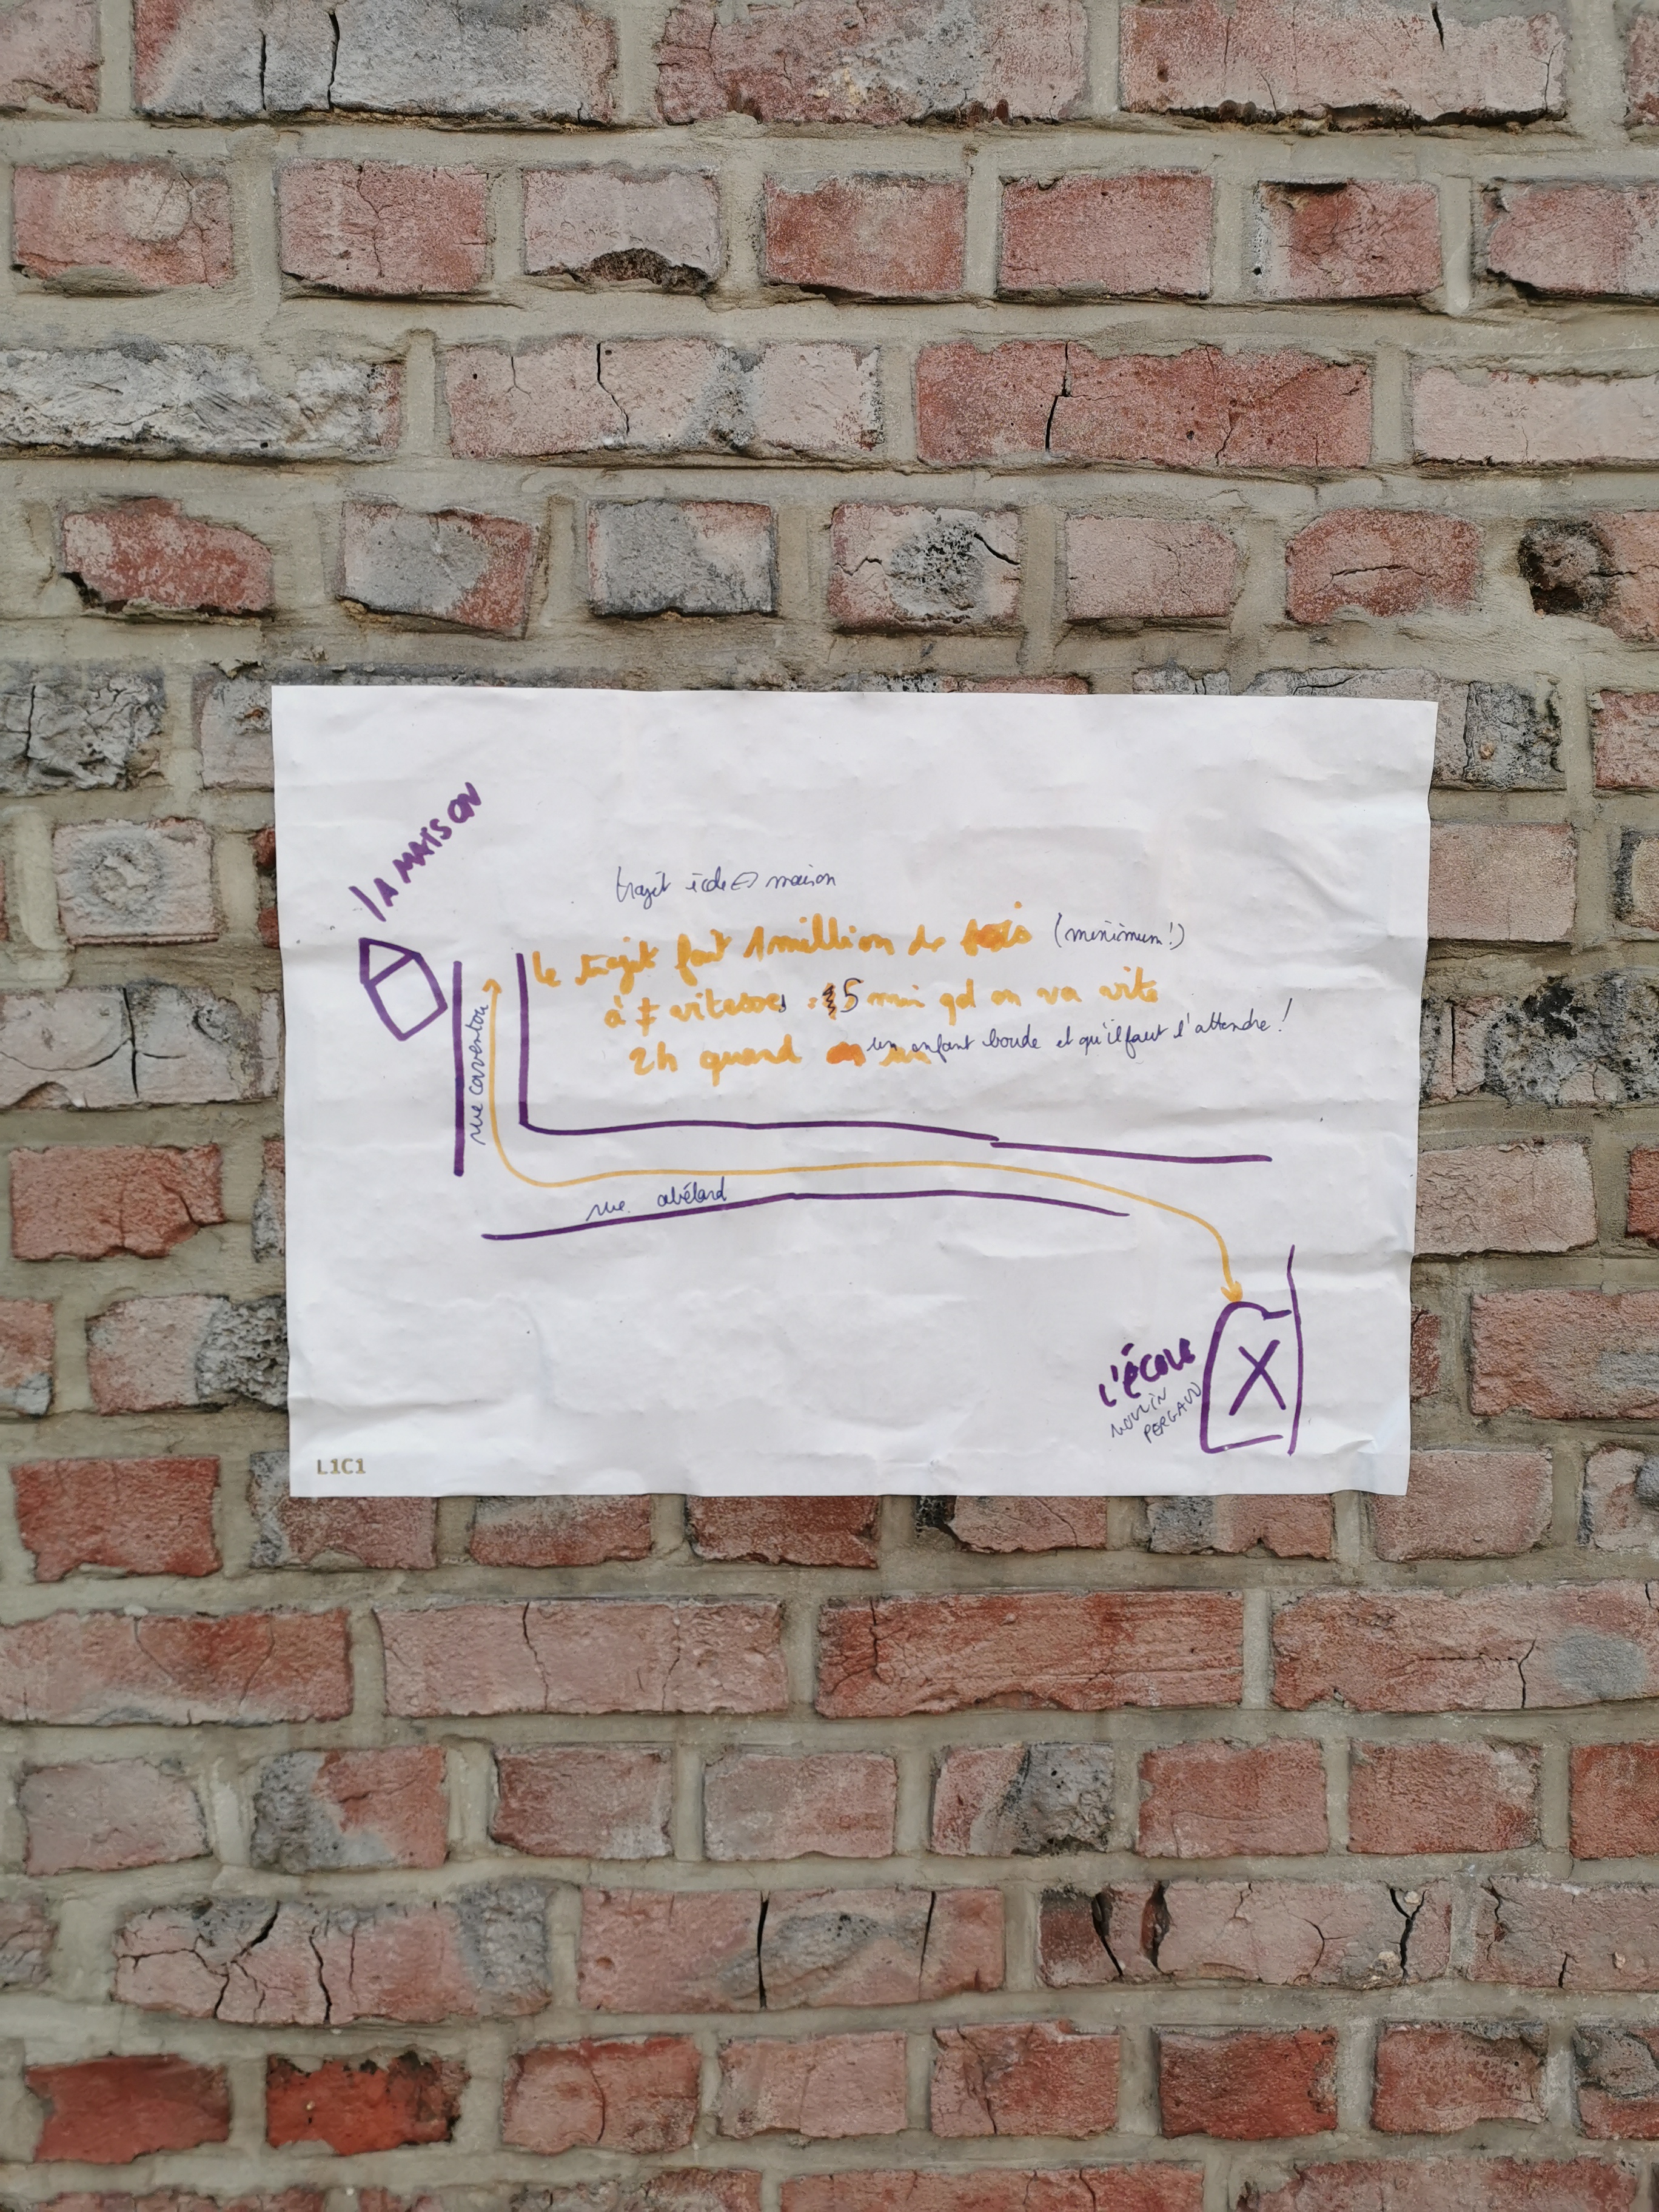 LA MAISON
trajet école ⇔ maison
le trajet fait 1 million de fois (minimum!)
à ≠ vitesses : 5 min qd on va vite
2h quand un enfant boude et qu'il faut l'attendre !
rue caventou
rue abélard
L'ÉCOLE
MOULIN
PERGAUD
L1C1